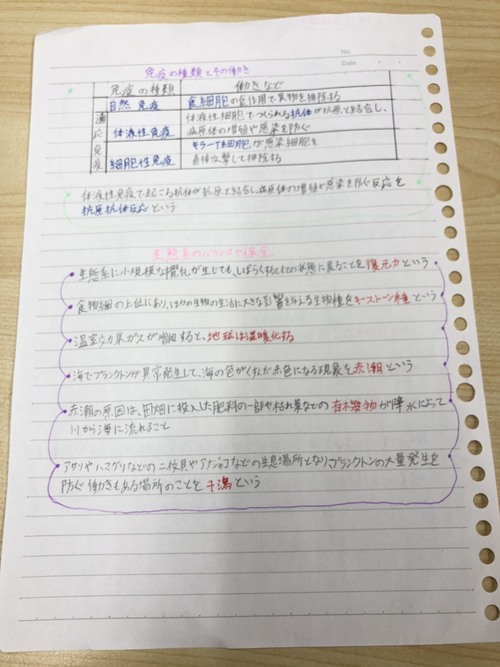 No.
Date
免疫の種類とその働き
免疫の種類 働きなど
自然免疫 食細胞の食作用で異物を排除する
適応免疫
体液性免疫 体液性細胞でつくられる抗体が抗原と結合し、
病原体の増殖や感染を防ぐ
細胞性免疫 キラーT細胞が感染細胞を
直接攻撃して排除する
体液性免疫で起こる抗体が抗原と結合し、病原体の増殖や感染を防ぐ反応を
抗原抗体反応という
生態系のバランスや保全
生態系に小規模な撹乱が生じても、しばらくするともとの状態に戻ることを復元力という
食物網の上位にあり、ほかの生物の生活に大きな影響を与える生物種をキーストーン種という
温室効果ガスが増加すると、地球は温暖化する
海でプランクトンが異常発生して、海の色がくすんだ赤色になる現象を赤潮という
赤潮の原因は、田畑に投入した肥料の一部や枯れ葉などの有機物が降水によって
川から海に流れること
アサリやハマグリなどの二枚貝やアナジャコなどの生息場所となり、プランクトンの大量発生を
防ぐ働きもある場所のことを干潟という